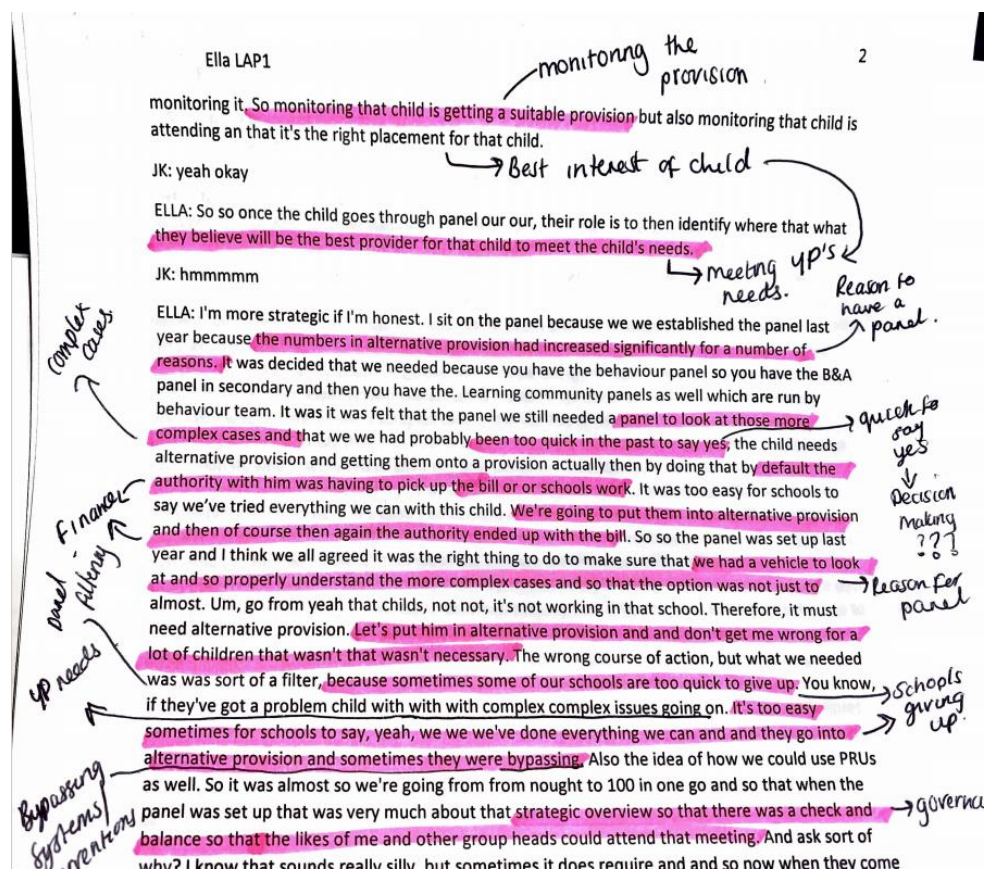 Ella LAP1
2
monitoring the
provision
monitoring it. So monitoring that child is getting a suitable provision but also monitoring that child is
attending an that it's the right placement for that child.
Best interest of child
JK: yeah okay
ELLA: So so once the child goes through panel our our, their role is to then identify where that what
they believe will be the best provider for that child to meet the child's needs.
Meeting YP's
needs.
JK: hmmmmm
Reason to
have a
panel.
complex
cases
ELLA: I'm more strategic if I'm honest. I sit on the panel because we we established the panel last
year because the numbers in alternative provision had increased significantly for a number of
reasons. It was decided that we needed because you have the behaviour panel so you have the B&A
panel in secondary and then you have the. Learning community panels as well which are run by
behaviour team. It was it was felt that the panel we still needed a panel to look at those more
complex cases and that we we had probably been too quick in the past to say yes; the child needs
alternative provision and getting them onto a provision actually then by doing that by default the
authority with him was having to pick up the bill or or schools work. It was too easy for schools to
say we've tried everything we can with this child. We're going to put them into alternative provision
and then of course then again the authority ended up with the bill. So so the panel was set up last
year and I think we all agreed it was the right thing to do to make sure that we had a vehicle to look
at and so properly understand the more complex cases and so that the option was not just to
almost. Um, go from yeah that childs, not not, it's not working in that school. Therefore, it must
need alternative provision. Let's put him in alternative provision and and don't get me wrong for a
lot of children that wasn't that wasn't necessary. The wrong course of action, but what we needed
was was sort of a filter, because sometimes some of our schools are too quick to give up. You know,
if they've got a problem child with with with complex complex issues going on. It's too easy
sometimes for schools to say, yeah, we we we've done everything we can and and they go into
alternative provision and sometimes they were bypassing. Also the idea of how we could use PRUs
as well. So it was almost so we're going from from nought to 100 in one go and so that when the
panel was set up that was very much about that strategic overview so that there was a check and
balance so that the likes of me and other group heads could attend that meeting. And ask sort of
why? I know that sounds really silly, but sometimes it does require and and so now when they come
quick to
say
yes
Decision
making
???
Finance
Panel
filtering
YP needs
Reason for
panel
Schools
giving
up.
Bypassing
systems
governa